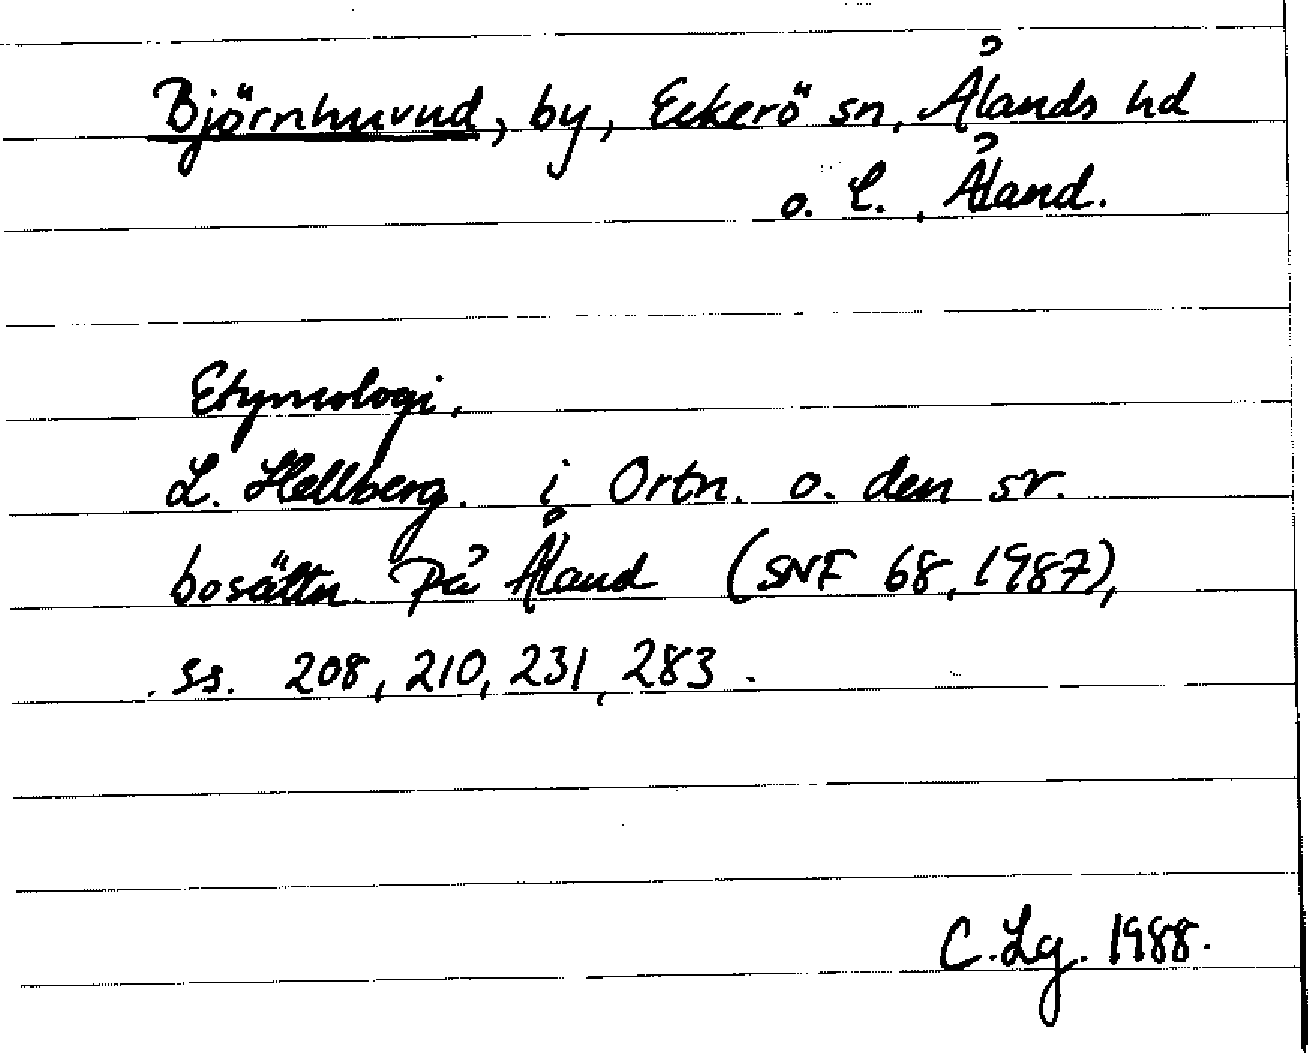 Björnhuvud, by, Eckerö sn, Ålands hd
o. L., Åland.
Etymologi.
L. Hellberg. i Ortn. o. den sv.
bosättn. på Åland (SNF 68, 1987),
ss. 208, 210, 231, 283.
C. Lg. 1988.